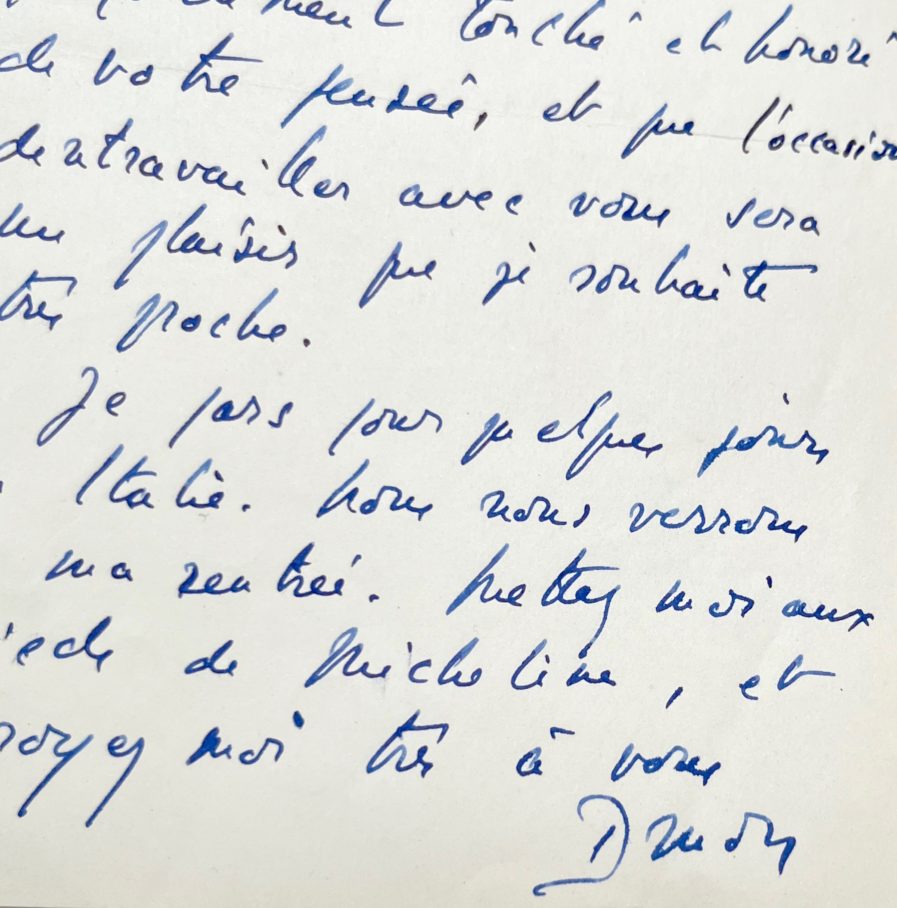 touché et honoré
de votre pensée, et que l'occasion
de retravailler avec vous sera
un plaisir que je souhaite
très proche.
Je pars pour quelques jours
Italie. Nous nous verrons
ma rentrée. Mettez moi aux
de Micheline, et
moi très à vous